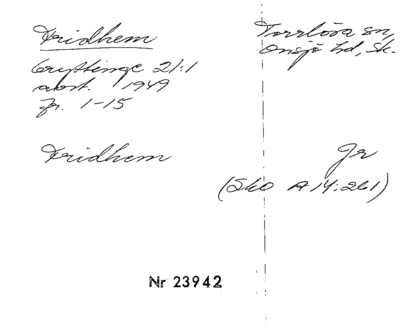 Fridhem
Torrlösa sn,
Onsjö hd, Sk.
Gryttinge 21:1
avst. 1949
fr. 1-15
Fridhem
Jr
(Sko A 14:261)
Nr 23942